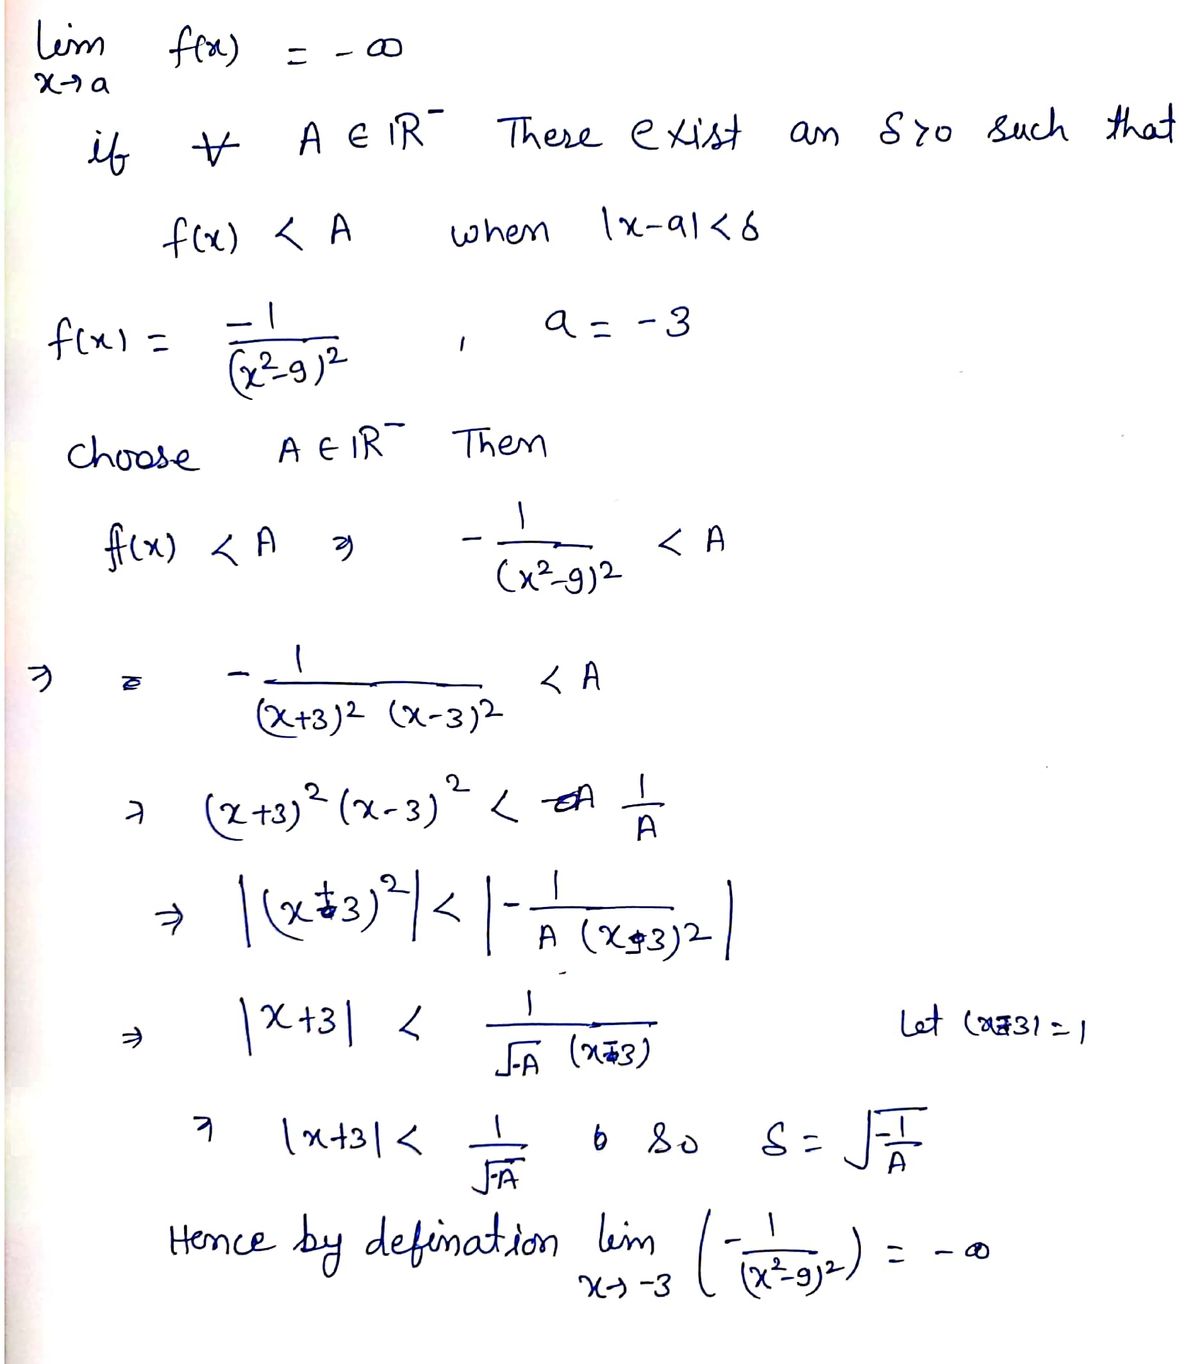 lim f(x) = -∞
x→a
if ∀ A ∈ IR⁻ There exist an δ>0 such that
f(x) < A when |x-a|<δ
f(x) = -1/(x²-9)² , a = -3
choose A ∈ IR⁻ Then
f(x) < A ⇒ -1/(x²-9)² < A
⇒ = -1/((x+3)² (x-3)²) < A
⇒ (x+3)² (x-3)² < 1/A
⇒ |(x+3)²| < |-1/(A (x-3)²)|
⇒ |x+3| < 1/(√-A (x-3)) Let (x-3) = 1
⇒ |x+3| < 1/√-A so δ = √(-1/A)
Hence by defination lim (-1/(x²-9)²) = -∞
x→-3